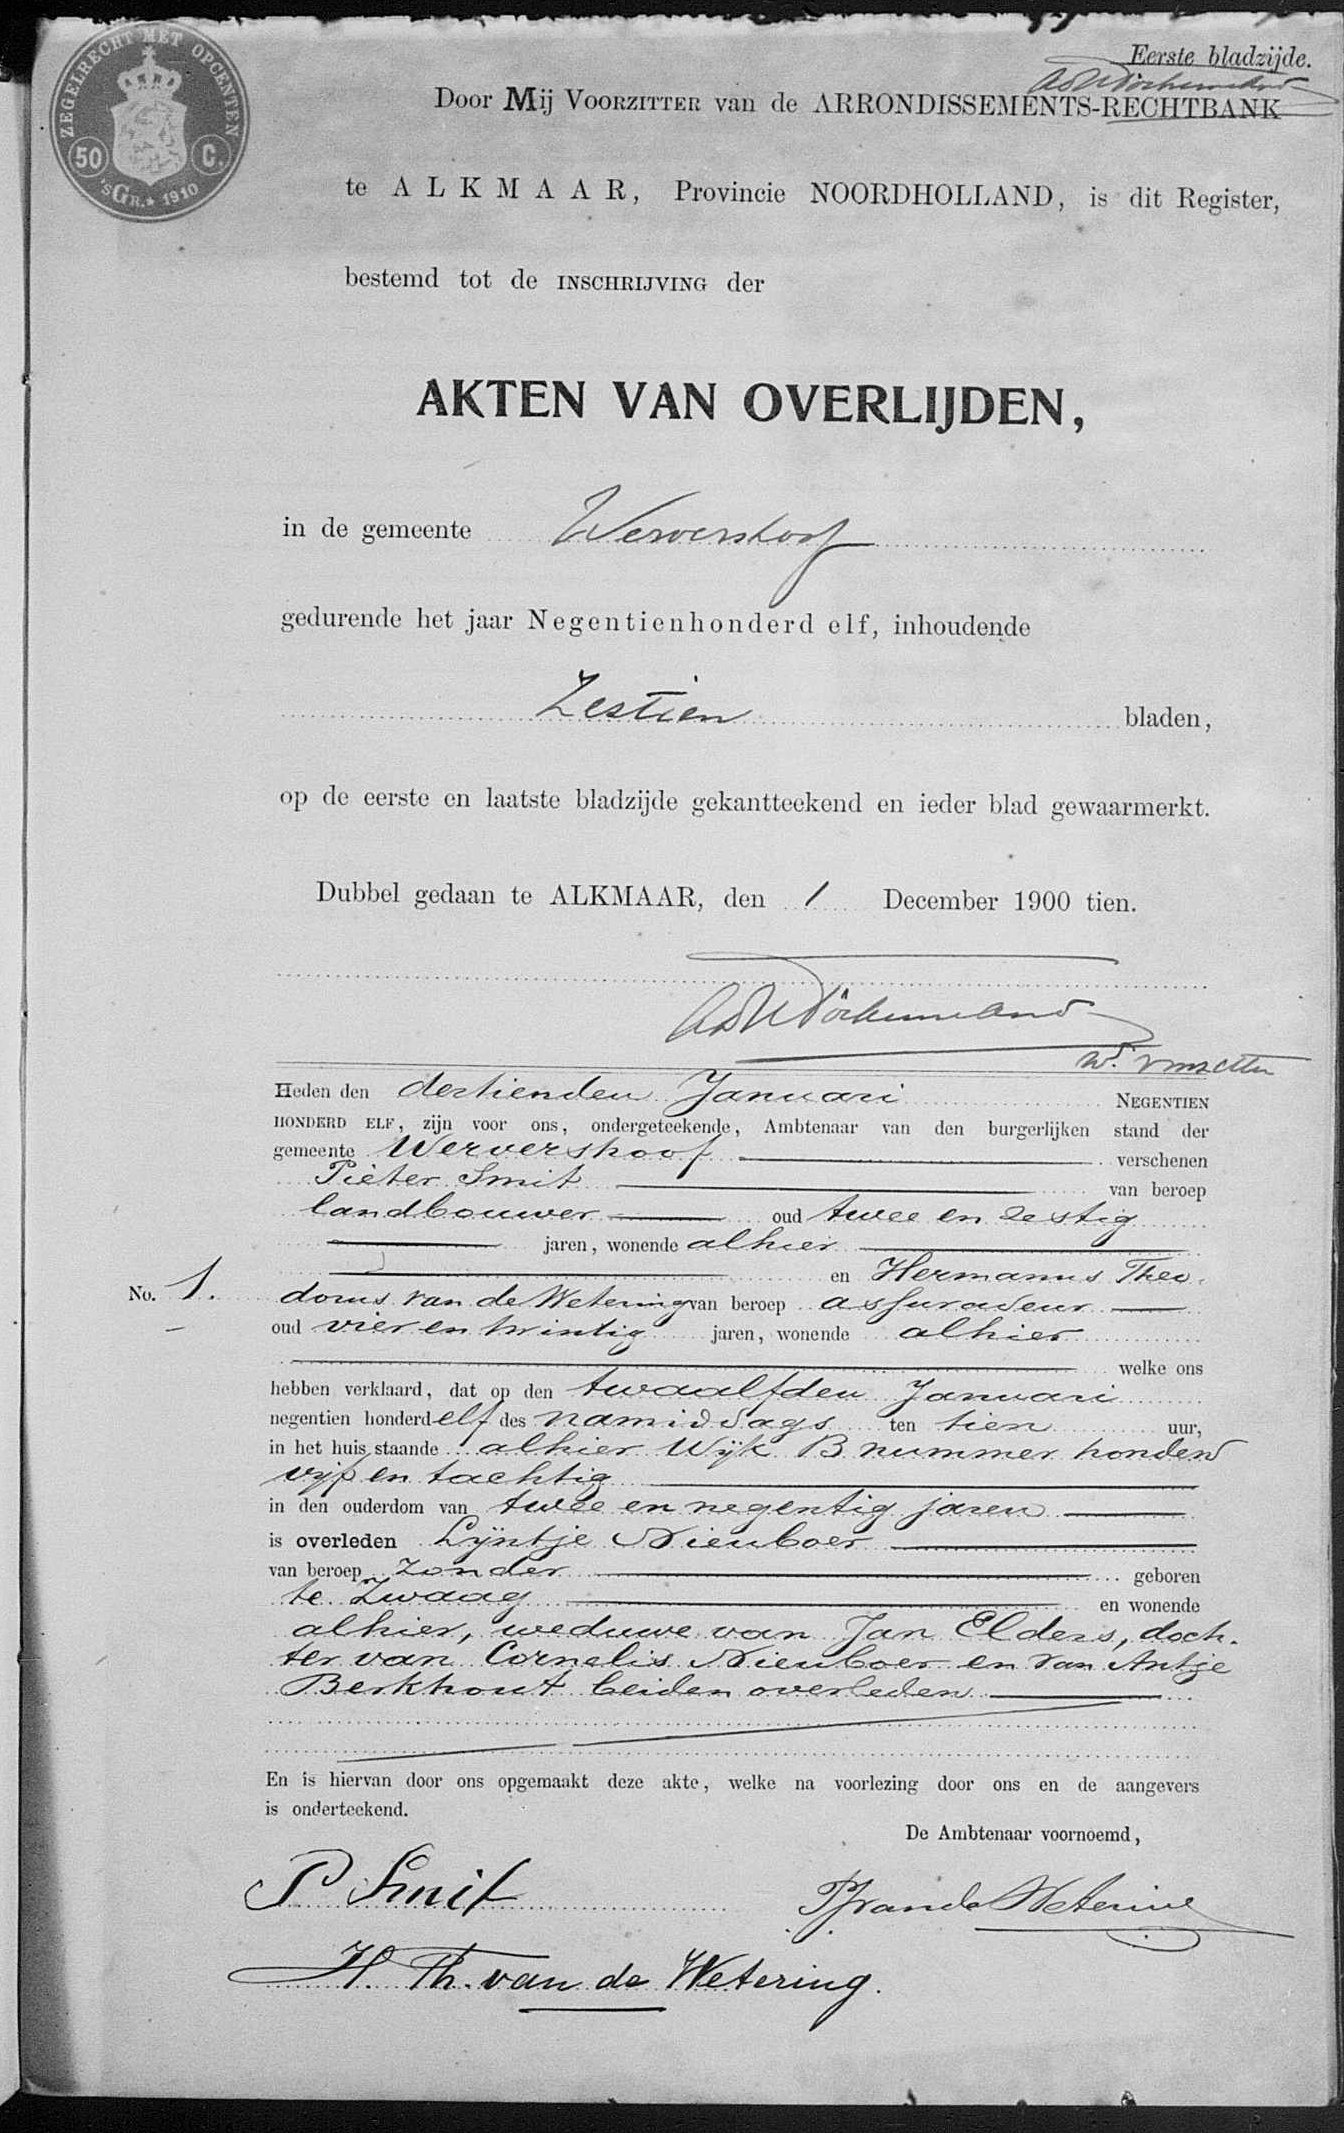 ZEGELRECHT MET OPCENTEN
50 C.
'sGR. 1910
Eerste bladzijde.
Door Mij VOORZITTER van de ARRONDISSEMENTS-RECHTBANK
te ALKMAAR, Provincie NOORDHOLLAND, is dit Register,
bestemd tot de INSCHRIJVING der
AKTEN VAN OVERLIJDEN,
in de gemeente Wervershoof
gedurende het jaar Negentienhonderd elf, inhoudende
Zestien bladen,
op de eerste en laatste bladzijde gekantteekend en ieder blad gewaarmerkt.
Dubbel gedaan te ALKMAAR, den 1 December 1900 tien.
Heden den dertienden Januari NEGENTIEN
HONDERD ELF, zijn voor ons, ondergeteekende, Ambtenaar van den burgerlijken stand der
gemeente Wervershoof verschenen
Pieter Smit van beroep
landbouwer oud twee en zestig
jaren, wonende alhier
en Hermanus Theo-
No. 1. dorus van de Wetering van beroep assuradeur
oud vier en twintig jaren, wonende alhier
welke ons
hebben verklaard, dat op den twaalfden Januari
negentien honderd elf des namiddags ten tien uur,
in het huis staande alhier Wijk B nummer honderd
vijf en tachtig
in den ouderdom van twee en negentig jaren
is overleden Lijntje Nieuboer
van beroep zonder geboren
te Zwaag en wonende
alhier, weduwe van Jan Elders, doch-
ter van Cornelis Nieuboer en van Antje
Berkhout beiden overleden
En is hiervan door ons opgemaakt deze akte, welke na voorlezing door ons en de aangevers
is onderteekend.
De Ambtenaar voornoemd,
P Smit
van de Wetering
H. Th. van de Wetering.